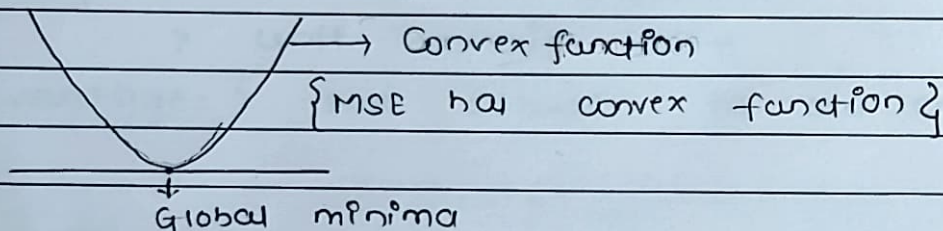 → Convex function
{MSE has convex function}
Global minima